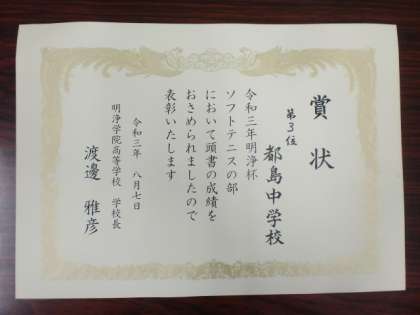 賞状
第3位
都島中学校
令和三年明浄杯
ソフトテニスの部
において頭書の成績を
おさめられましたので
表彰いたします
令和三年 八月七日
明浄学院高等学校 学校長
渡邊 雅彦